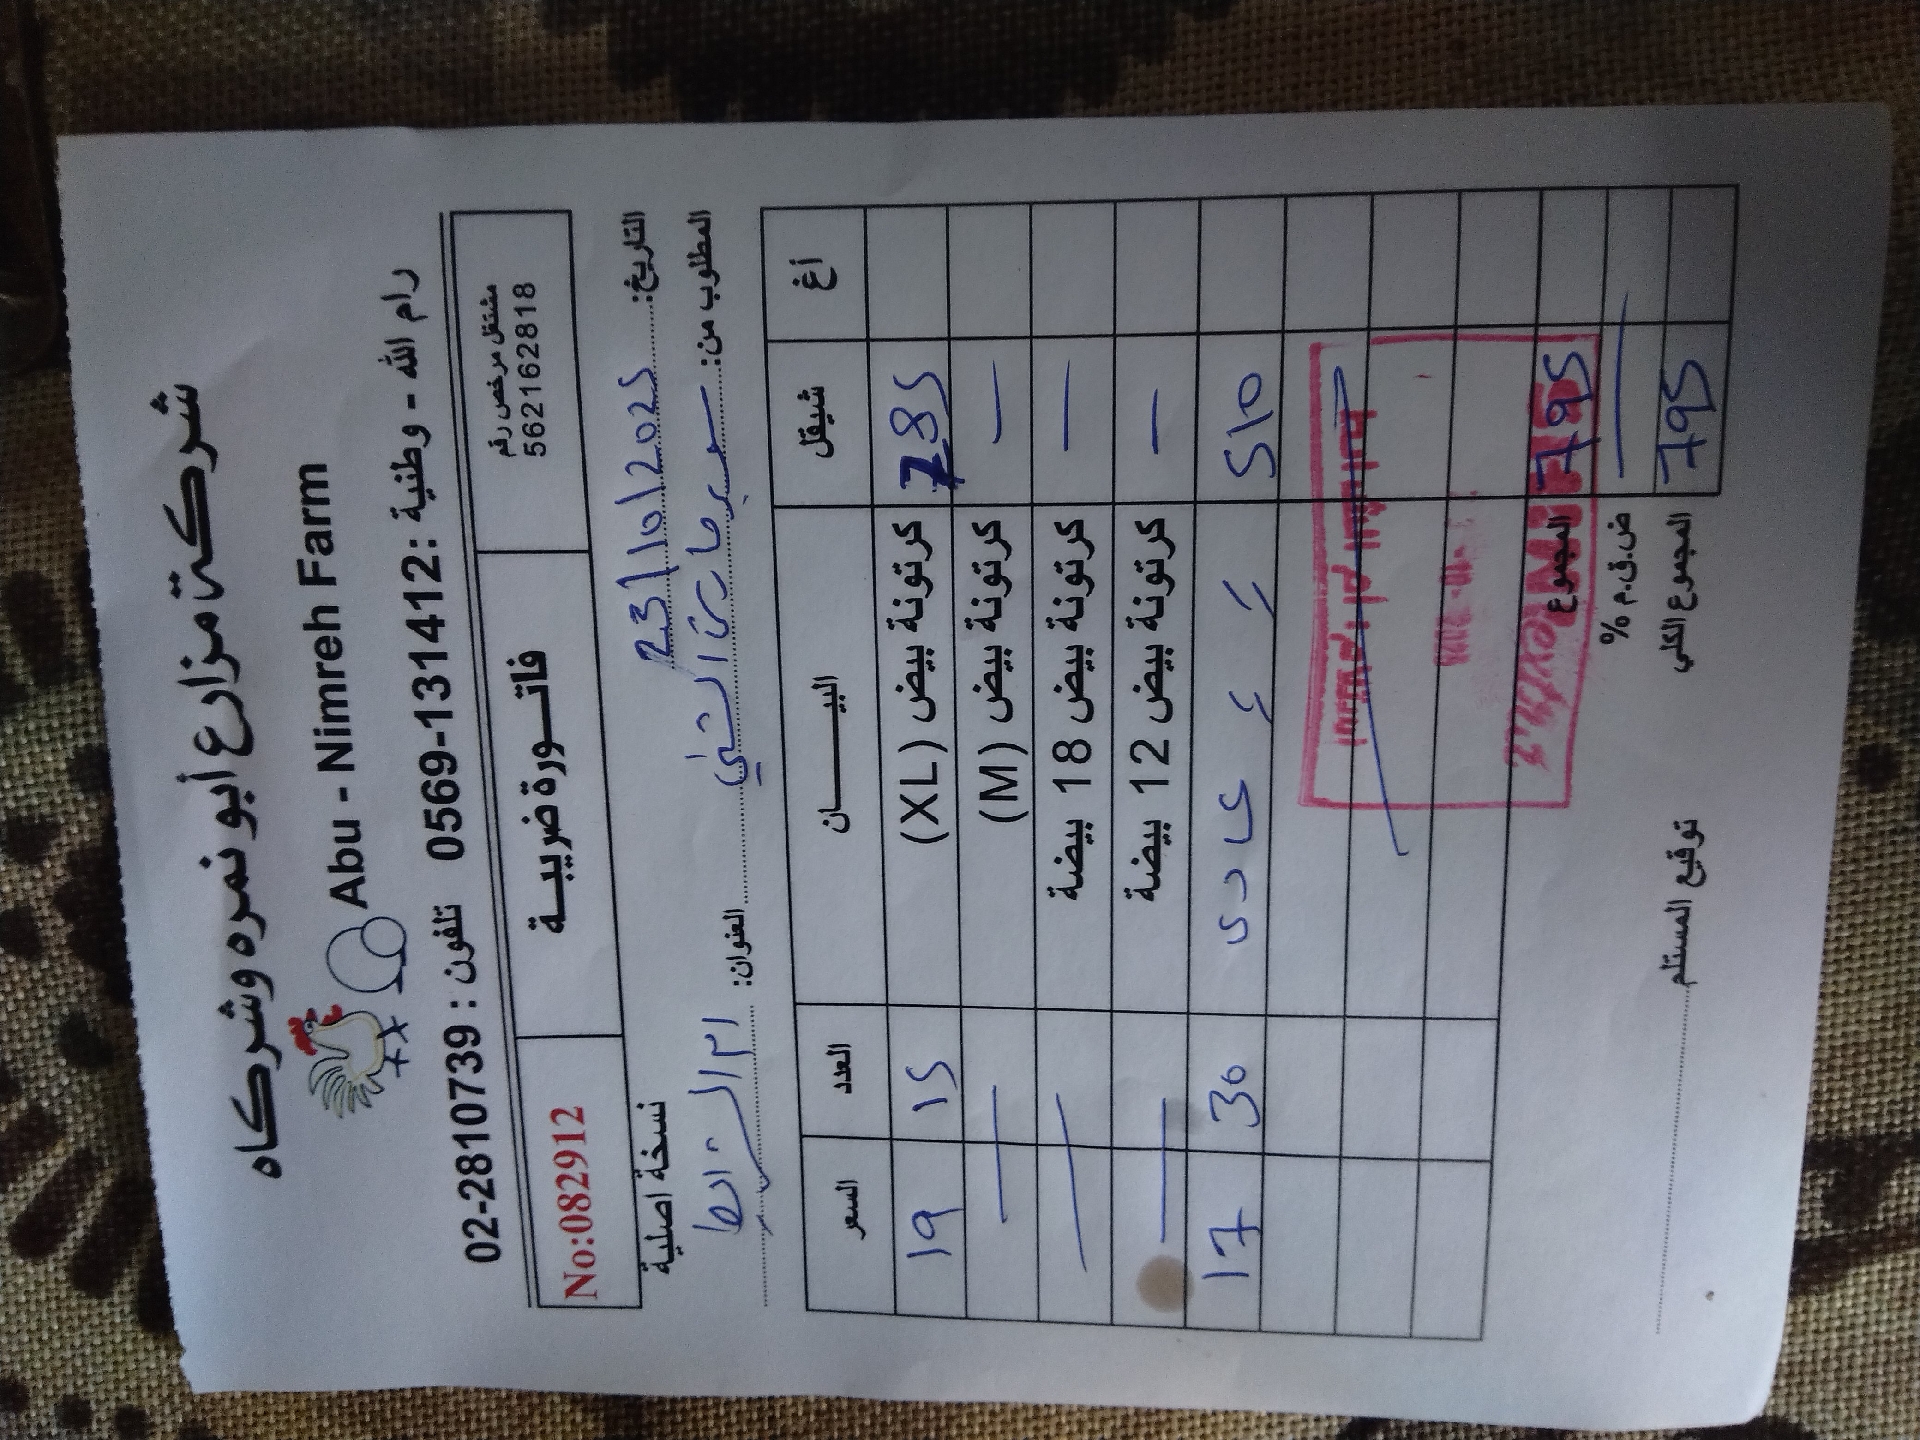 شركة مزارع أبو نمره وشركاه
Abu - Nimreh Farm
رام الله - وطنية : 0569-131412 تلفون : 02-2810739
مشتغل مرخص رقم
562162818
فاتـــورة ضريبيـــة
No:082912
التاريخ: 23/10/2025
نسخة اصلية
المطلوب من: سوبرماركت
العنوان: ام الشرايط
أغ شيقل البيـــــــان العدد السعر
785 كرتونة بيض (XL) 15 19
— كرتونة بيض (M) —
— كرتونة بيض 18 بيضة —
— كرتونة بيض 12 بيضة —
510 30 17
795 المجموع
— ض.ق.م %
795 المجموع الكلي
توقيع المستلم